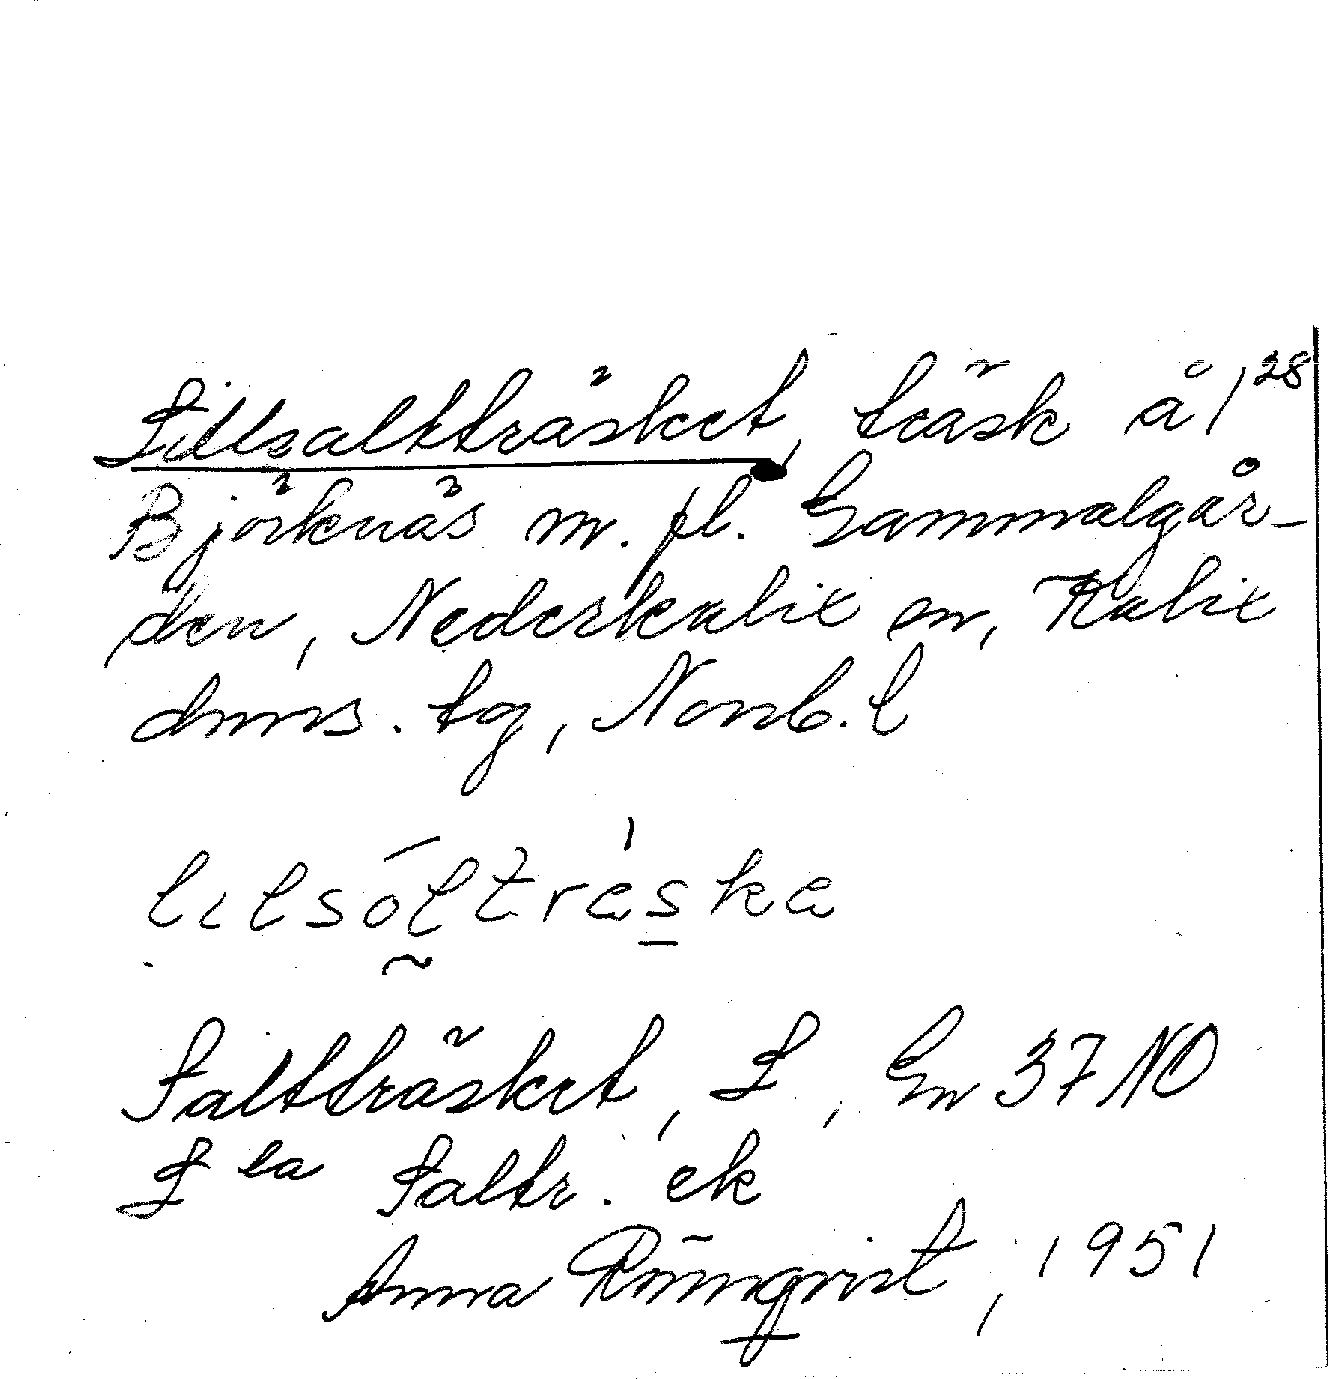 Lillsaltträsket, träsk å 1²⁸
Björknäs m. pl. Gammalgår-
den, Nederkalix sn, Kalix
dmrs. tg, Norrb. l
lılsólträska
Saltträsket, L, Gn 37 NO
L la Saltr. ek
Anna Rönnqvist, 1951